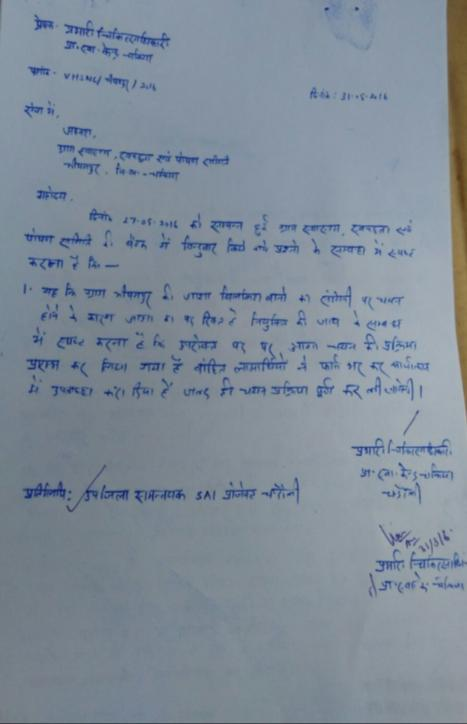 प्रेषक- प्रभारी चिकित्साधिकारी
प्रा. स्वा. केन्द्र - चकिया
पत्रांक - VHSNC/ चौबेपुर / 2016
दिनांक : 31-05-2016
सेवा में,
अध्यक्षा,
ग्राम स्वास्थ्य, स्वच्छता एवं पोषण समिति
चकिया
महोदया,
दिनांक 27-05-2016 को सम्पन्न हुई ग्राम स्वास्थ्य, स्वच्छता एवं
पोषण समिति की बैठक में बिन्दुवार किये गये प्रश्नो के सम्बन्ध में स्पष्ट
करना है कि —
1. यह कि ग्राम की आशा का संगिनी पर चयन
होने के कारण आशा का पद रिक्त है नियुक्ति की के सम्बन्ध
में स्पष्ट करना है कि उपरोक्त पद पर आशा चयन की प्रक्रिया
प्रारम्भ कर दिया गया है फार्म भर कर कार्यालय
में उपलब्ध करा दिया है जल्द ही चयन प्रक्रिया पूर्ण कर ली जायेगी।
प्रभारी चिकित्साधिकारी
प्रा. स्वा. केन्द्र चकिया
चंदौली
प्रतिलिपि: उप जिला समन्वयक SAI प्रोजेक्ट चंदौली
31/5/16
प्रभारी चिकित्साधि
प्रा. स्वा. के. चकिया